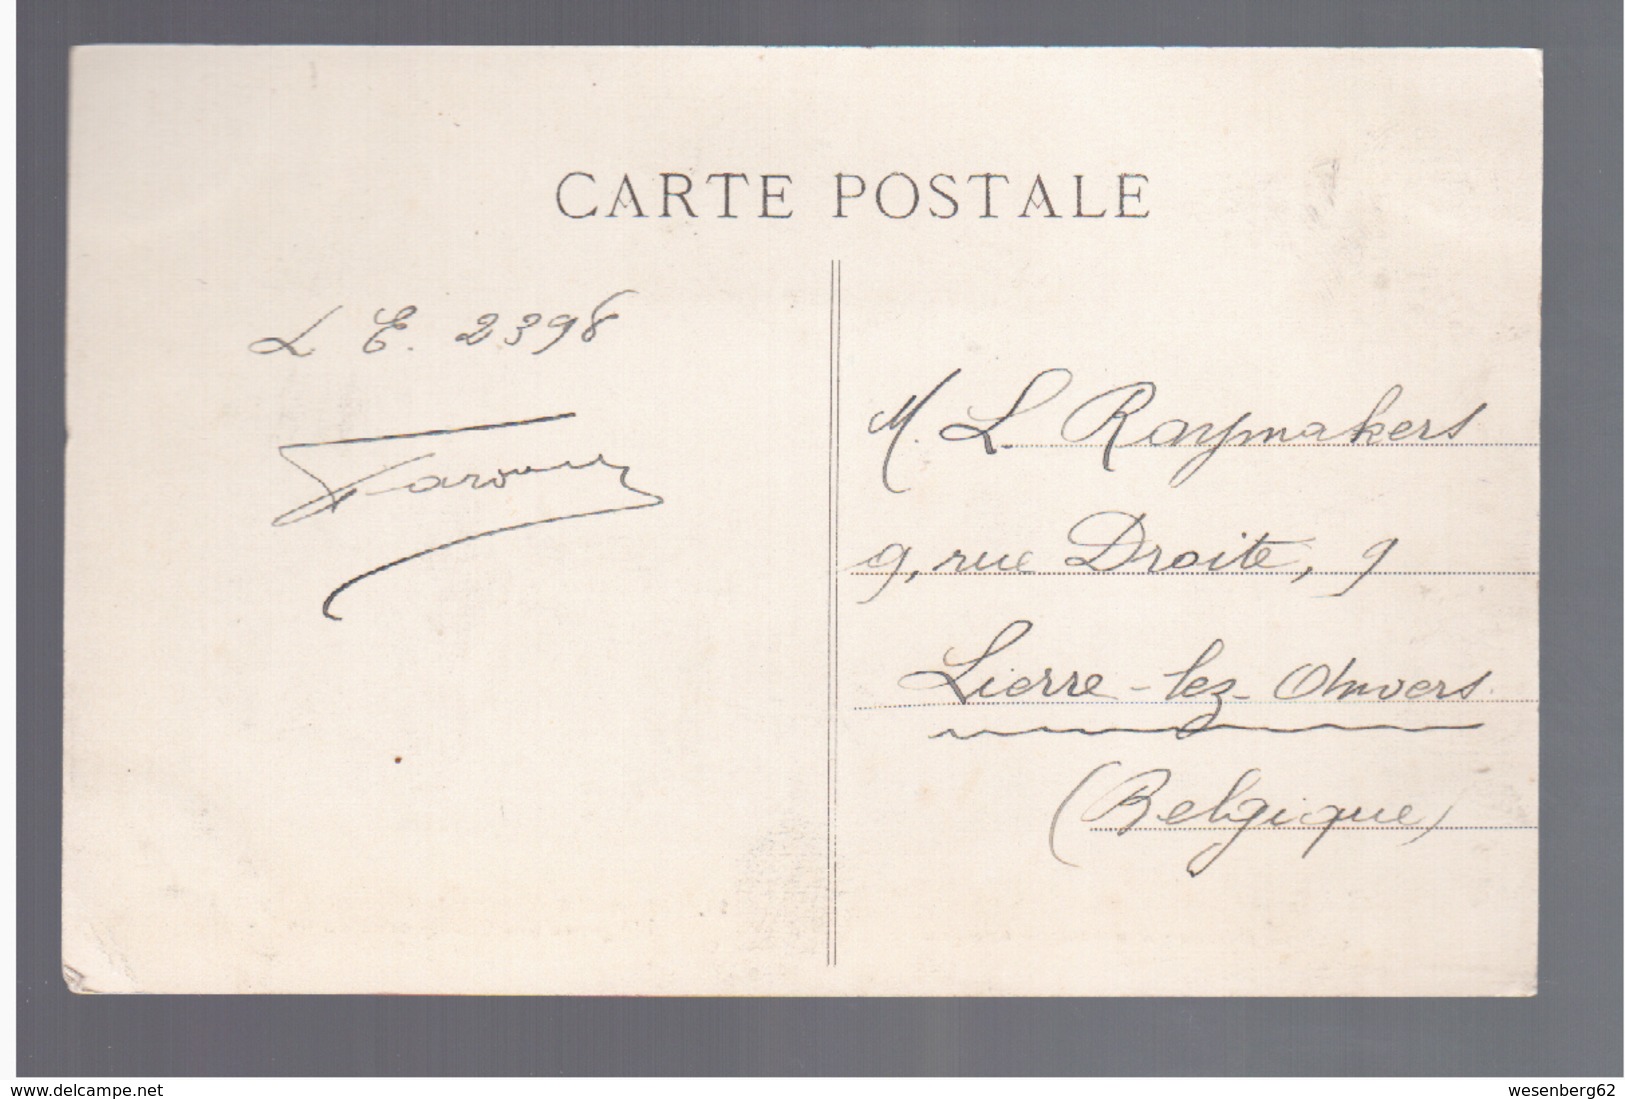 CARTE POSTALE
L E. 2398
M. L. Raymakers
9, rue Droite, 9
Lierre-lez-Anvers
(Belgique)
www.delcampe.net
wesenberg62